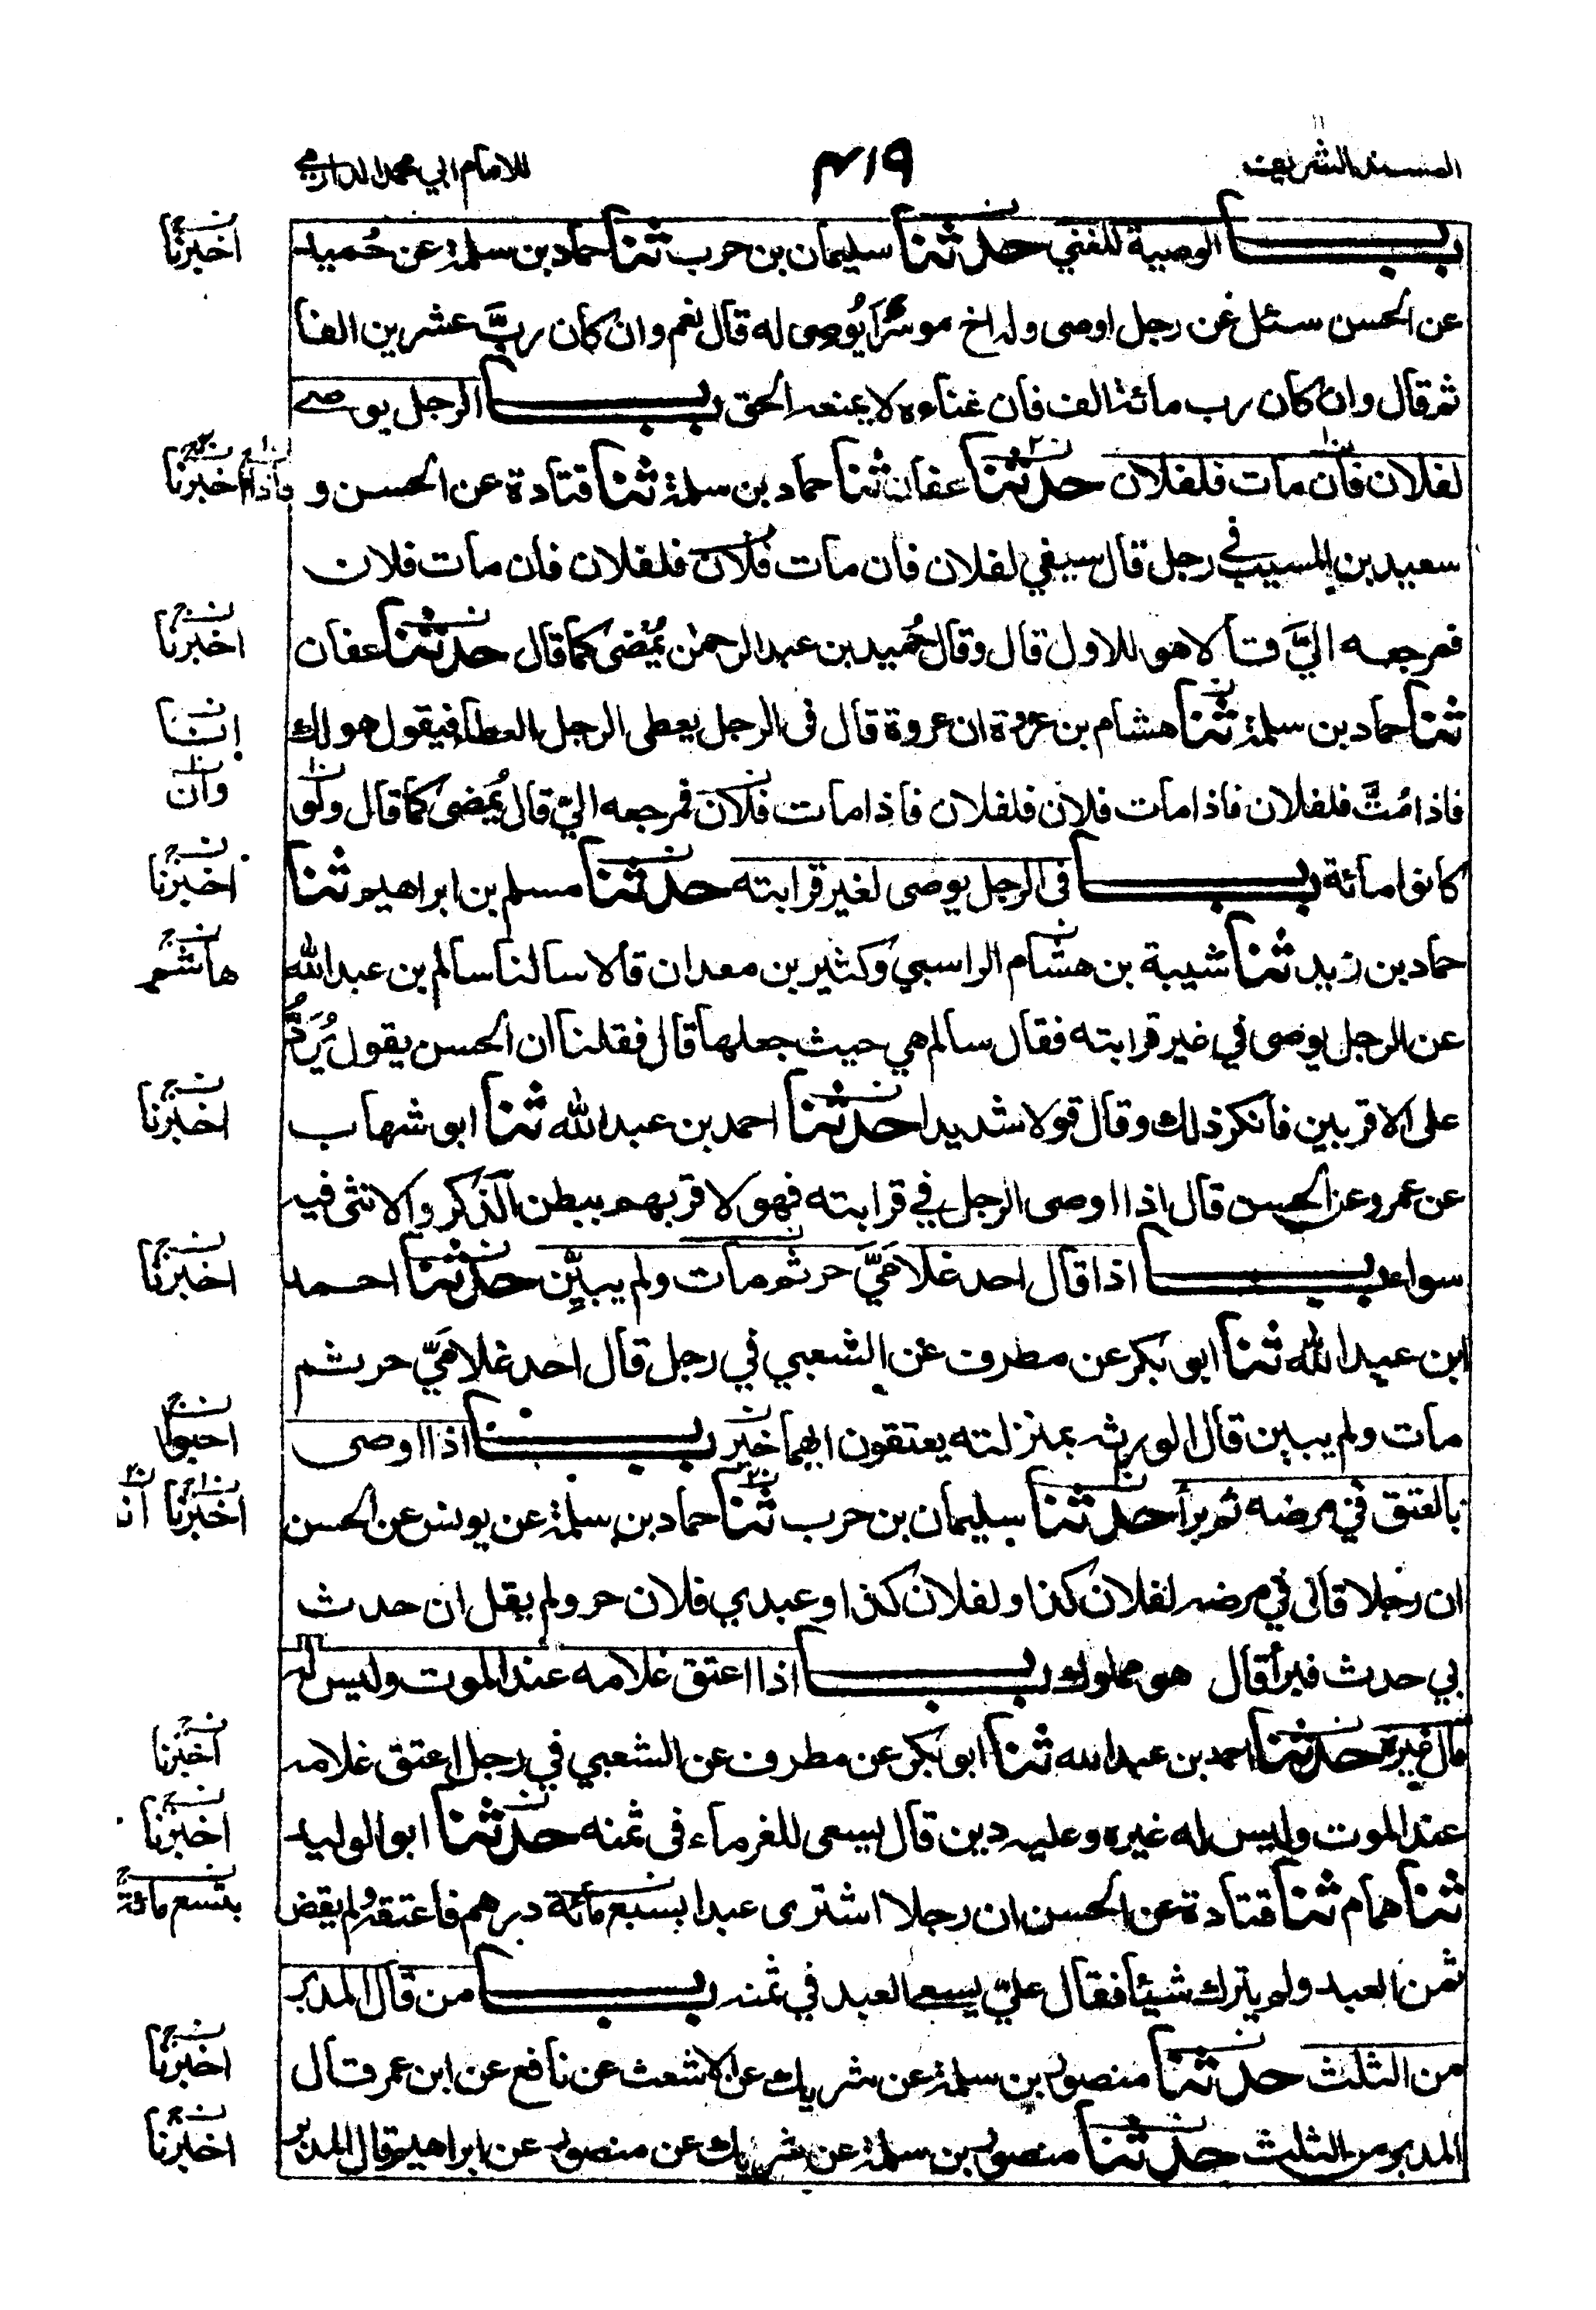 المسند الشريف ٤١٩ للامام ابي محمد الدارمي
باب الوصية للغني حدثنا سليمان بن حرب ثنا حماد بن سلمة عن حُميد
اخبرنا
عن الحسن سئل عن رجل اوصى وله اخ موسرٌ أيُوصِى له قال نعم وان كان ربَّ عشرين الفا
ثم قال وان كان رب مائة الف فان غناءه لا يمنعه الحق باب الرجل يوصى
لفلان فان مات فلفلان حدثنا عفان ثنا حماد بن سلمة ثنا قتادة عن الحسن و
فاذا اخبرنا
سعيد بن المسيب في رجل قال سيفي لفلان فان مات فلان فلفلان فان مات فلان
فمرجعه اليَّ قالا هو للاول قال وقال حُميد بن عبد الرحمن يُمضى كما قال حدثنا عفان
اخبرنا
ثنا حماد بن سلمة ثنا هشام بن عروة ان عروة قال فى الرجل يعطى الرجل العطا فيقول هو لك
انبنا
فاذا مُتَّ فلفلان فاذا مات فلان فلفلان فاذا مات فلان فمرجعه اليّ قال يُمضى كما قال ولو
وان
كانوا مائة باب فى الرجل يوصى لغير قرابته حدثنا مسلم بن ابراهيم ثنا
اخبرنا
حماد بن زيد ثنا شيبة بن هشام الراسبي وكثير بن معدان قالا سالنا سالم بن عبد الله
هاشم
عن الرجل يوصى في غير قرابته فقال سالم هي حيث جعلها قال فقلنا ان الحسن يقول يُرَدُّ
على الاقربين فانكر ذلك وقال قولا شديدا حدثنا احمد بن عبد الله ثنا ابو شهاب
اخبرنا
عن عمرو عن الحسن قال اذا اوصى الرجل في قرابته فهو لاقربهم ببطن الذكر والانثى فيه
سواء باب اذا قال احد غلامَيَّ حر ثم مات ولم يبيِّن حدثنا احمد
اخبرنا
ابن عبد الله ثنا ابو بكر عن مطرف عن الشعبي في رجل قال احد غلامَيّ حر ثم
مات ولم يبين قال الورثة بمنزلته يعتقون ايهما خير باب اذا اوصى
احبوا
بالعتق في مرضه ثم برأ حدثنا سليمان بن حرب ثنا حماد بن سلمة عن يونس عن الحسن
اخبرنا
ان رجلا قال في مرضه لفلان كذا ولفلان كذا وعبدي فلان حر ولم يقل ان حدث
بي حدث فبرأ قال هو مملوك باب اذا اعتق غلامه عند الموت وليس له
مال غيره حدثنا احمد بن عبد الله ثنا ابو بكر عن مطرف عن الشعبي في رجل اعتق غلامه
اخبرنا
عند الموت وليس له غيره وعليه دين قال يسعى للغرماء فى ثمنه حدثنا ابو الوليد
اخبرنا
ثنا همام ثنا قتادة عن الحسن ان رجلا اشترى عبدا بسبع مائة درهم فاعتقه ولم يقض
بتسع مائة
ثمن العبد ولم يترك شيئا فقال عليّ يسعى العبد في ثمنه باب من قال المدبر
من الثلث حدثنا منصور بن سلمة عن شريك عن الاشعث عن نافع عن ابن عمر قال
اخبرنا
المدبر من الثلث حدثنا منصور بن سلمة عن شريك عن منصور عن ابراهيم قال المدبر
اخبرنا